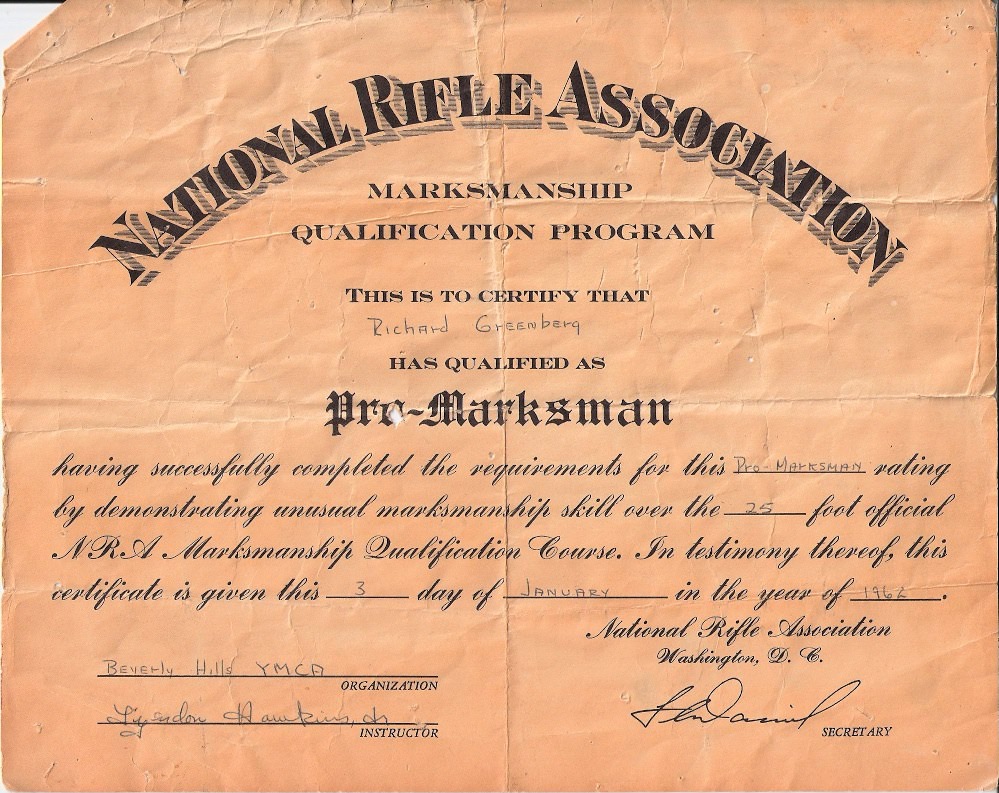 NATIONAL RIFLE ASSOCIATION
MARKSMANSHIP
QUALIFICATION PROGRAM
THIS IS TO CERTIFY THAT
Richard Greenberg
HAS QUALIFIED AS
Pro-Marksman
having successfully completed the requirements for this Pro-Marksman rating
by demonstrating unusual marksmanship skill over the 25 foot official
NRA Marksmanship Qualification Course. In testimony thereof, this
certificate is given this 3 day of January in the year of 1962.
National Rifle Association
Washington, D. C.
Beverly Hills YMCA
ORGANIZATION
Hawkins, Jr
INSTRUCTOR
SECRETARY